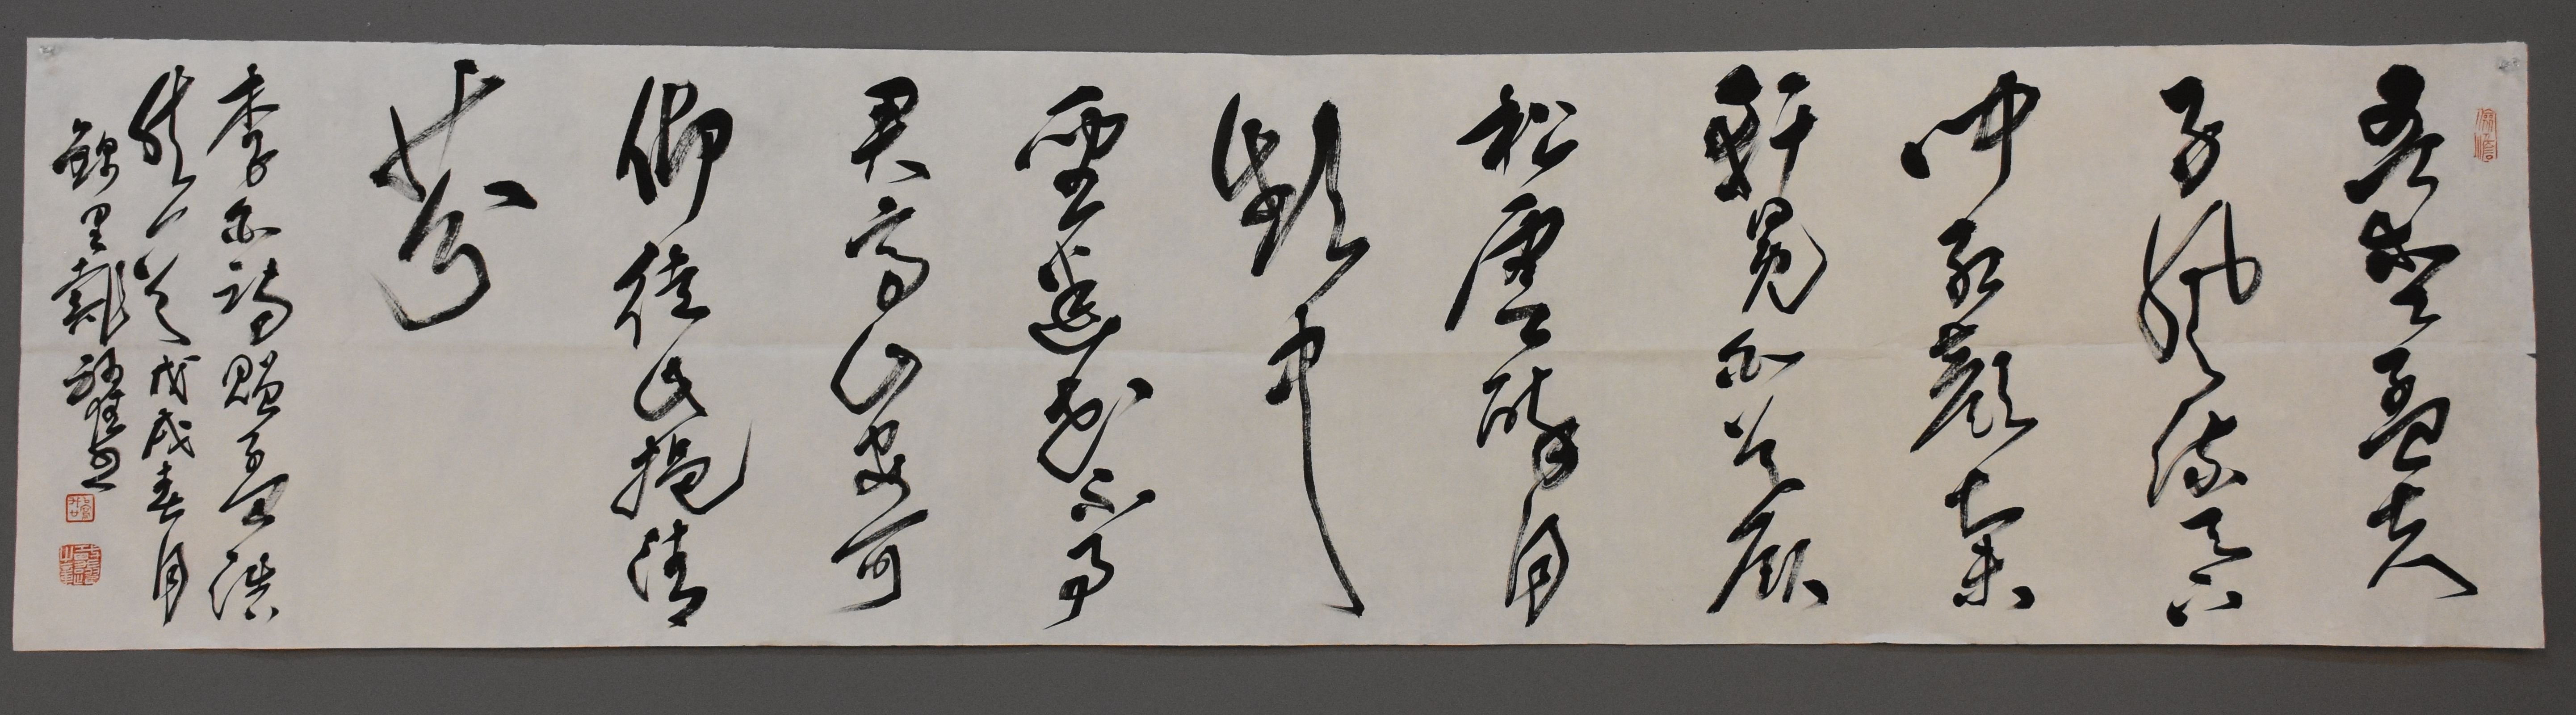 吾愛孟夫
子風流天下
聞紅顏棄
軒冕白首臥
松雲醉月
頻中
聖迷花不事
君高山安可
仰徒此揖清
芬
李白詩贈孟浩
然一首戊戌春月
錦里戴